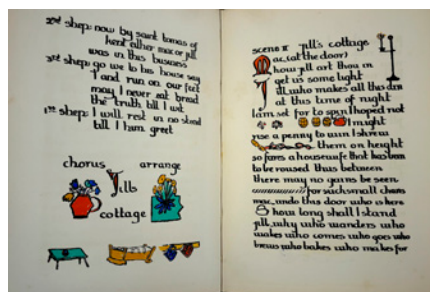 2nd shep: now by saint tomas of
kent other mac or jill
was in this business
3rd shep: go we to his house say
I and run on our feet
may I never eat bread
the truth till I wit
1st shep: I will rest in no stead
till I ham greet
chorus arrange
Jills
cottage
scene II jill's cottage
Mac, (at the door)
how jill art thou in
get us some light
jill, who makes all this din
at this time of night
I am set for to spin I hoped not
I might
rise a penny to win I shrew
them on height
so fares a housewife that has been
to be roused thus between
there may no gains be seen
for such small chars
mac, undo this door who is here
how long shall I stand
jill, why who wanders who
wakes who comes who goes who
brews who bakes who makes for